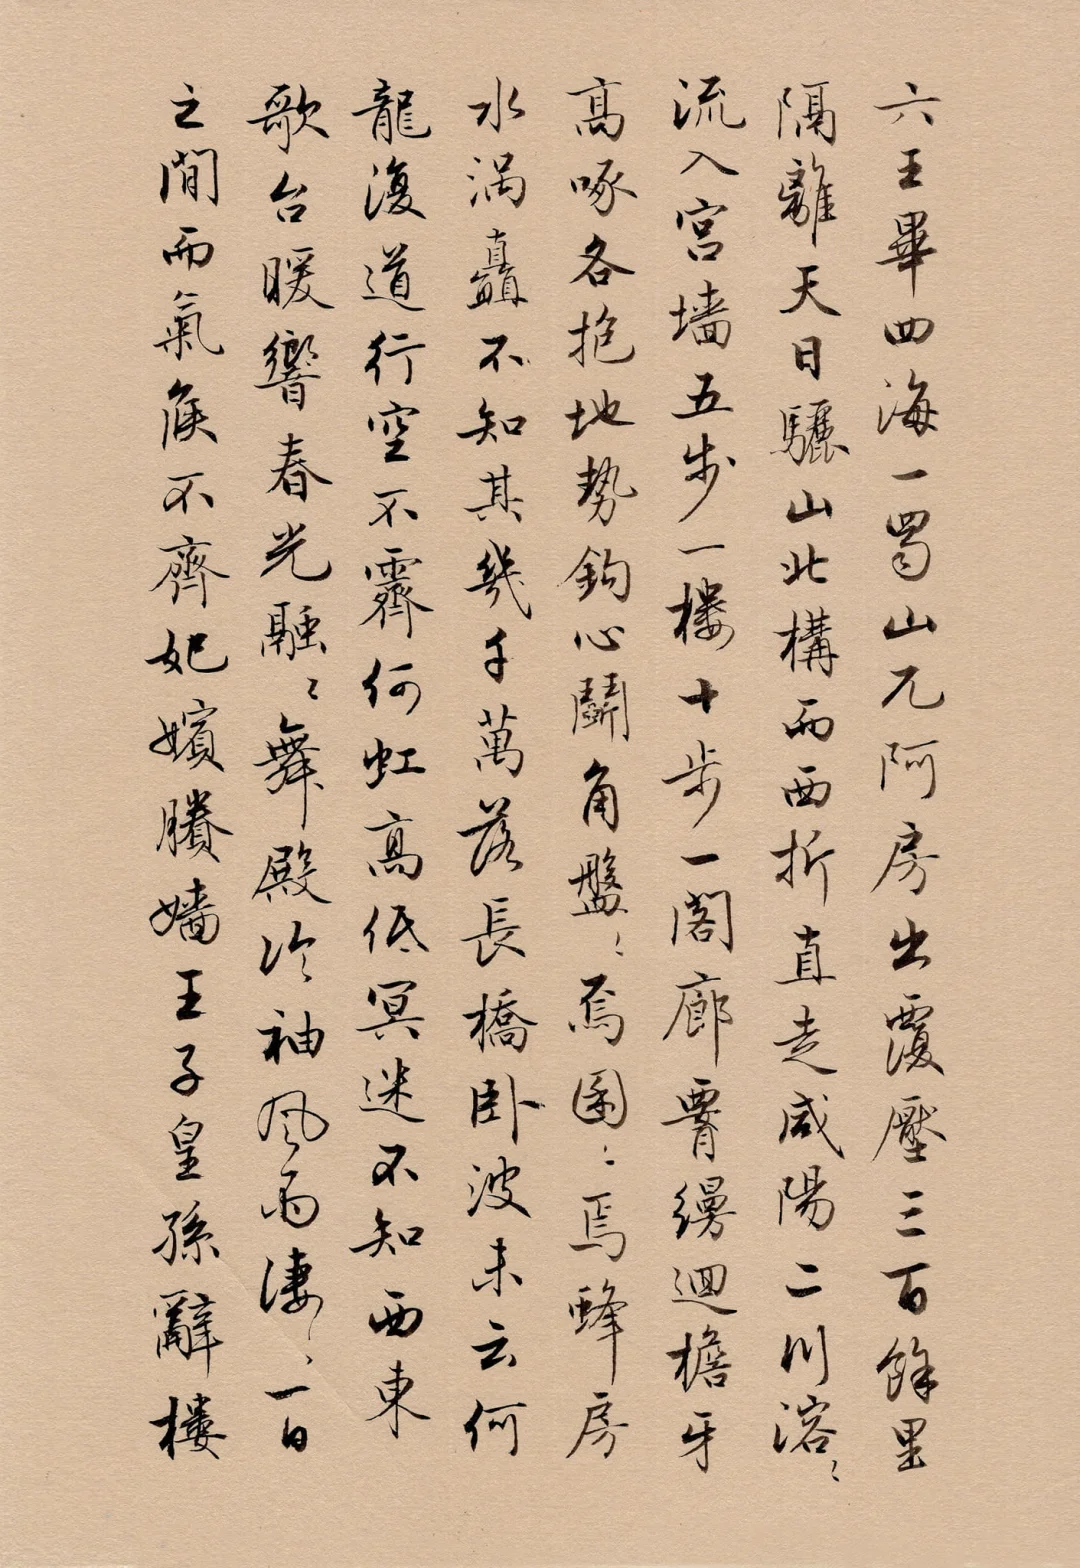 六王畢四海一蜀山兀阿房出覆壓三百餘里
隔離天日驪山北構而西折直走咸陽二川溶〻
流入宮墻五步一樓十步一閣廊腰縵迴檐牙
高啄各抱地勢鈎心鬭角盤〻焉囷〻焉蜂房
水渦矗不知其幾千萬落長橋卧波未云何
龍復道行空不霽何虹高低冥迷不知西東
歌台暖響春光融〻舞殿冷袖風雨淒〻一日
之間而氣候不齊妃嬪媵嬙王子皇孫辭樓